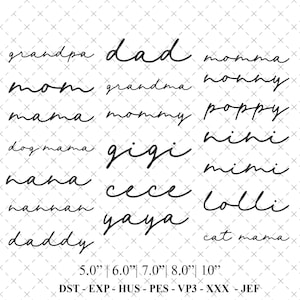 grandpa
mom
mama
dog mama
nana
nannan
daddy
dad
grandma
mommy
gigi
cece
yaya
momma
nonny
poppy
nini
mimi
lolli
cat mama
5.0” | 6.0”| 7.0”| 8.0”| 10”
DST - EXP - HUS - PES - VP3 - XXX - JEF